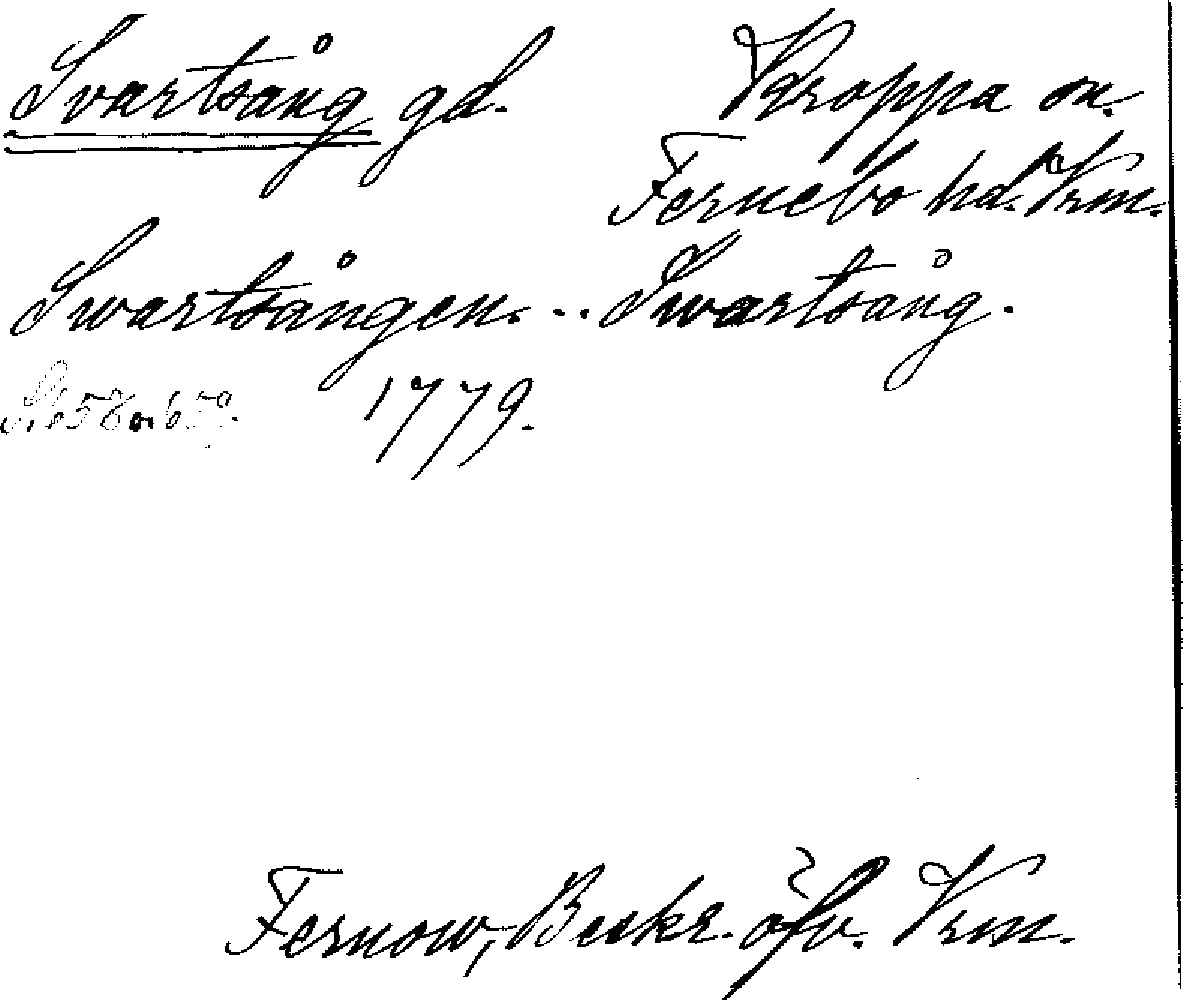 Svartsång gd. Kroppa sn.
Fernebo hd. Vrm.
Swartsången. .. Swartsång.
S. 658 o. 659. 1779.
Fernow, Beskr. öfv. Vrm.